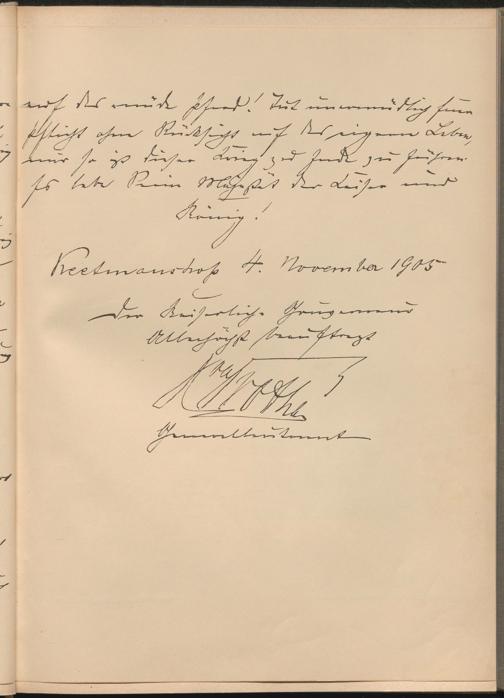 auf das müde Pferd! Tut unermüdlich Eure
Pflicht ohne Rücksicht auf das eigene Leben,
nur so ist dieser Krieg zu Ende zu führen.
Es lebe Seine Majestät der Kaiser und
König!
Keetmanshop 4. November 1905
Der Kaiserliche Gouverneur
Allerhöchst beauftragt
v Trotha
Generalleutnant